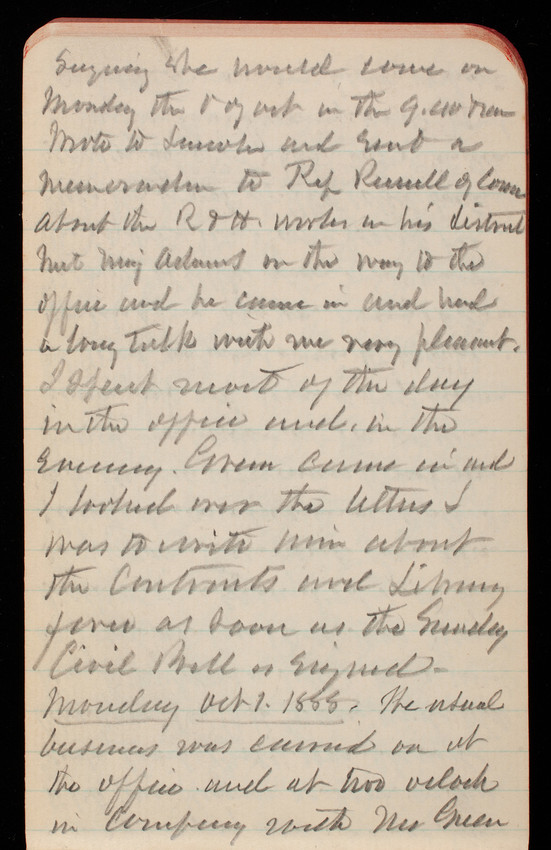 Saying she would come on
Monday the 8 of Oct in the
Wrote to Lincoln and sent a
memorandum to Rep Russell of Conn
about the R & H. works in his district
Met Maj Adams on the way to the
office and he came in and had
a long talk with me very pleasant.
I spent most of the day
in the office and, in the
Evening. Green came in and
I looked over the letters I
was to write him about
the Contracts and Library
force as soon as the Sunday
Civil Bill is signed -
Monday Oct 1. 1888. The usual
business was carried on at
the office and at two oclock
in Company with Mr Green